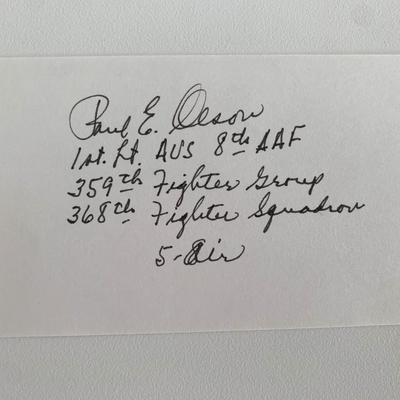 Paul E. Olson
1st. Lt. AUS 8th AAF
359th Fighter Group
368th Fighter Squadron
5-Air